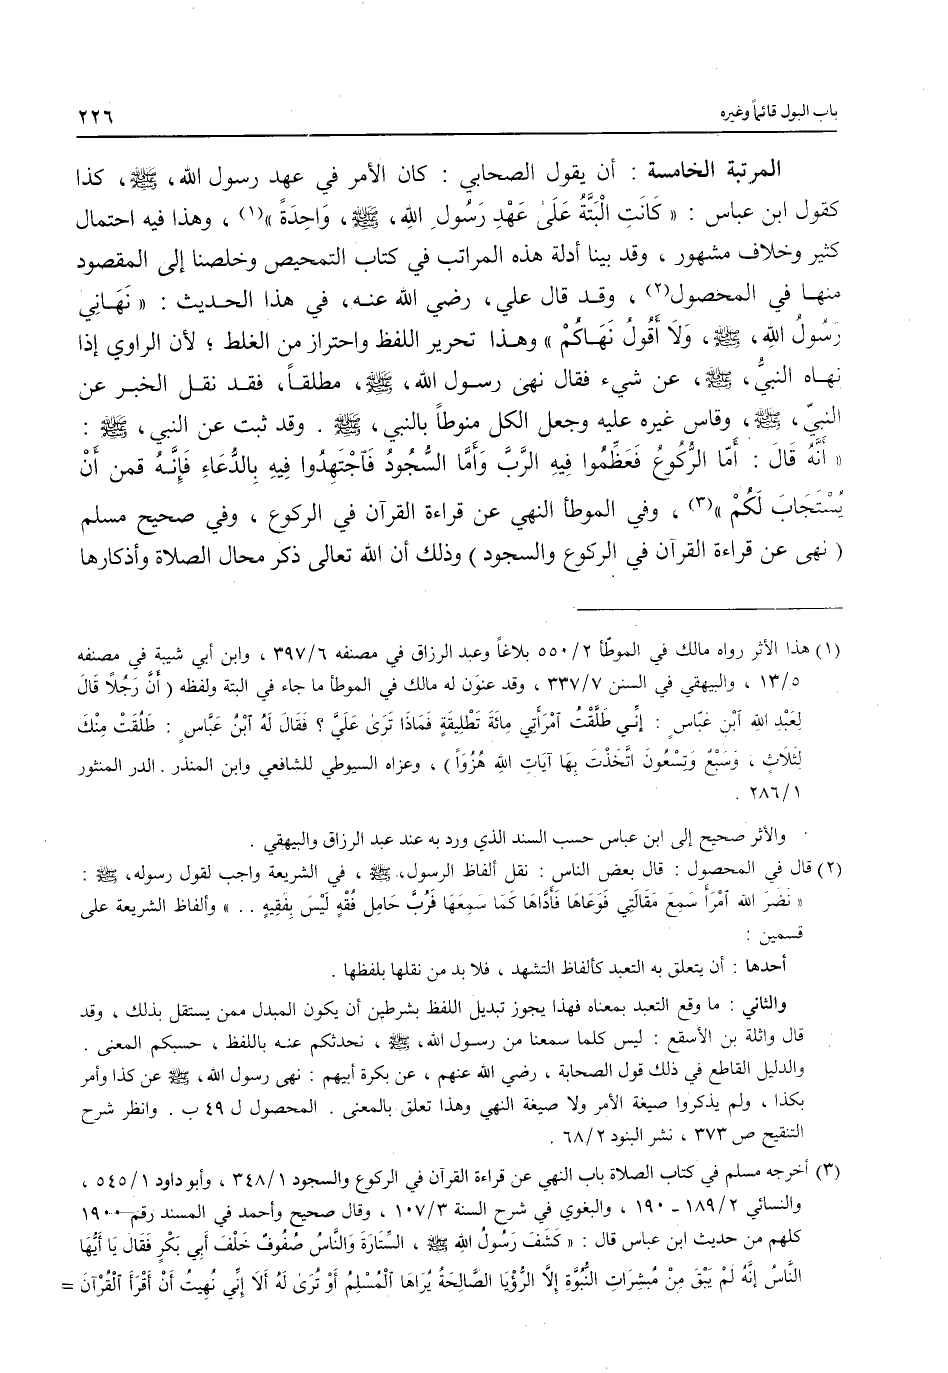 باب البول قائماً وغيره
٢٢٦
المرتبة الخامسة : أن يقول الصحابي : كان الأمر في عهد رسول الله، ﷺ، كذا
كقول ابن عباس : « كَانَتِ الْبَتَّةُ عَلَىٰ عَهْدِ رَسُولِ اللهِ، ﷺ، وَاحِدَةً »(١) ، وهذا فيه احتمال
كثير وخلاف مشهور ، وقد بينا أدلة هذه المراتب في كتاب التمحيص وخلصنا إلى المقصود
منهـا في المحصول(٢) ، وقـد قال علي، رضي الله عنـه، في هذا الحـديث : « نَهَـانِي
رَسُولُ اللهِ، ﷺ، وَلَا أَقُولُ نَهَـاكُمْ » وهـذا تحرير اللفظ واحتراز من الغلط ؛ لأن الراوي إذا
نهـاه النبيُّ، ﷺ، عن شيء فقال نهى رسـول الله، ﷺ، مطلقـاً، فقـد نقـل الخبـر عن
النبيّ، ﷺ، وقاس غيره عليه وجعل الكل منوطاً بالنبي، ﷺ . وقد ثبت عن النبي، ﷺ :
« أَنَّهُ قَالَ : أَمَّا الرُّكُوعُ فَعَظِّمُوا فِيهِ الرَّبَّ وَأَمَّا السُّجُودُ فَآجْتَهِدُوا فِيهِ بِالدُّعَاءِ فَإِنَّـهُ قمن أَنْ
يُسْتَجَابَ لَكُمْ »(٣) ، وفي الموطأ النهي عن قراءة القرآن في الركوع ، وفي صحيح مسلم
( نهى عن قراءة القرآن في الركوع والسجود ) وذلك أن الله تعالى ذكر محال الصلاة وأذكارها
(١) هذا الأثر رواه مالك في الموطّأ ٥٥٠/٢ بلاغاً وعبد الرزاق في مصنفه ٣٩٧/٦ ، وابن أبي شيبة في مصنفه
١٣/٥ ، والبيهقي في السنن ٣٣٧/٧ ، وقد عنوَن له مالك في الموطأ ما جاء في البتة ولفظه ( أَنَّ رَجُلًا قَالَ
لِعَبْدِ اللهِ آبْنِ عَبَّاسٍ : إِنِّـي طَلَّقْتُ آمْرَأَتِي مِائَةَ تَطْلِيقَةٍ فَمَاذَا تَرَىٰ عَلَيَّ ؟ فَقَالَ لَهُ آبْنُ عَبَّاسٍ : طَلُقَتْ مِنْكَ
لِثَلَاثٍ ، وَسَبْعٌ وَتِسْعُونَ اتَّخَذْتَ بِهَا آيَاتِ اللهِ هُزُوَاً ) ، وعزاه السيوطي للشافعي وابن المنذر . الدر المنثور
٢٨٦/١ .
والأثر صحيح إلى ابن عباس حسب السند الذي ورد به عند عبد الرزاق والبيهقي .
(٢) قال في المحصول : قال بعض الناس : نقل ألفاظ الرسول، ﷺ ، في الشريعة واجب لقول رسوله، ﷺ :
« نَضَرَ الله آمْرَأً سَمِعَ مَقَالَتِي فَوَعَاهَا فَأَدَّاهَا كَمَا سَمِعَهَا فَرُبَّ حَامِلِ فِقْهٍ لَيْسَ بِفَقِيهٍ . . » وألفاظ الشريعة على
قسمين :
أحدها : أن يتعلق به التعبد كألفاظ التشهد ، فلا بد من نقلها بلفظها .
والثاني : ما وقع التعبد بمعناه فهذا يجوز تبديل اللفظ بشرطين أن يكون المبدل ممن يستقل بذلك ، وقد
قال واثلة بن الأسقع : ليس كلما سمعنا من رسـول الله، ﷺ ، نحدثكم عنـه باللفظ ، حسبكم المعنى .
والدليل القاطع في ذلك قول الصحابة ، رضي الله عنهم ، عن بكرة أبيهم : نهى رسول الله، ﷺ عن كذا وأمر
بكذا ، ولم يذكروا صيغة الأمر ولا صيغة النهي وهذا تعلق بالمعنى . المحصول ل ٤٩ ب . وانظر شرح
التنقيح ص ٣٧٣ ، نشر البنود ٦٨/٢ .
(٣) أخرجه مسلم في كتاب الصلاة باب النهي عن قراءة القرآن في الركوع والسجود ٣٤٨/١ ، وأبو داود ٥٤٥/١ ،
والنسائي ١٨٩/٢ ـ ١٩٠ ، والبغوي في شرح السنة ١٠٧/٣ ، وقال صحيح وأحمد في المسند رقم ١٩٠٠
كلهم من حديث ابن عباس قال : « كَشَفَ رَسُولُ اللهِ ﷺ ، السِّتَارَةَ وَالنَّاسُ صُفُوفٌ خَلْفَ أَبِي بَكْرٍ فَقَالَ يَا أَيُّهَا
النَّاسُ إِنَّهُ لَمْ يَبْقَ مِنْ مُبَشِّرَاتِ النُّبُوَّةِ إِلَّا الرُّؤْيَا الصَّالِحَةُ يُرَاهَا آلْمُسْلِمُ أَوْ تُرَىٰ لَهُ أَلَا إِنِّي نُهِيتُ أَنْ أَقْرَأَ آلْقُرْآنَ =